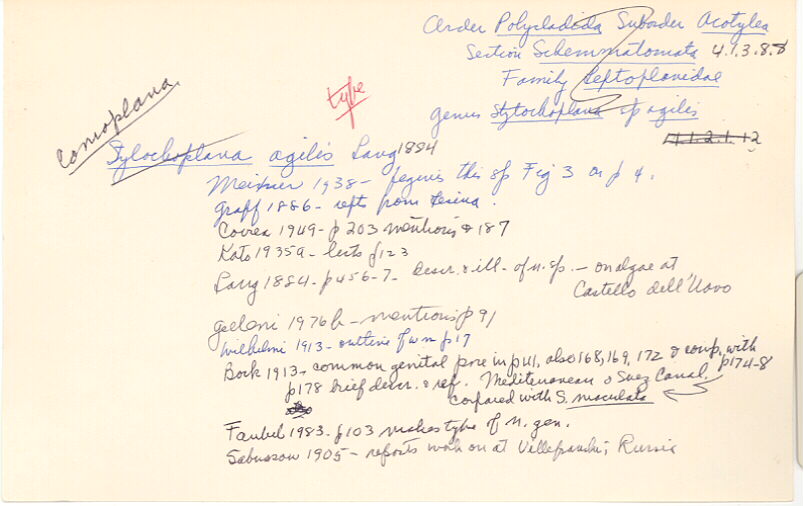 Order Polycladida Suborder Acotylea
Section Schemmatomata 4.1.3.8.8
Family Leptoplanidae
genus Stylochoplana sp agilis
4.1.2.1.12
Comoplana
type
Stylochoplana agilis Lang 1884
Meixner 1938 - figures this sp Fig 3 on p 4.
Graff 1886 - repts from Lesina.
Correa 1949 - p 203 mentions & 187
Kato 1935a - lists p123
Lang 1884 - p456-7 - descr. & ill. of n. sp. - on algae at
Castello dell'Uovo
Galleni 1976b - mentions p 91
Wilhelmi 1913 - outline of worm p17
Bock 1913 - common genital pore in p41, also 168, 169, 172 & comp. with p174-8
p178 brief descr. & ref. Mediterranean & Suez Canal.
Compared with S. maculata
Faubel 1983 - p103 makes type of n. gen.
Sabussow 1905 - reports work on at Villefranche, Russia